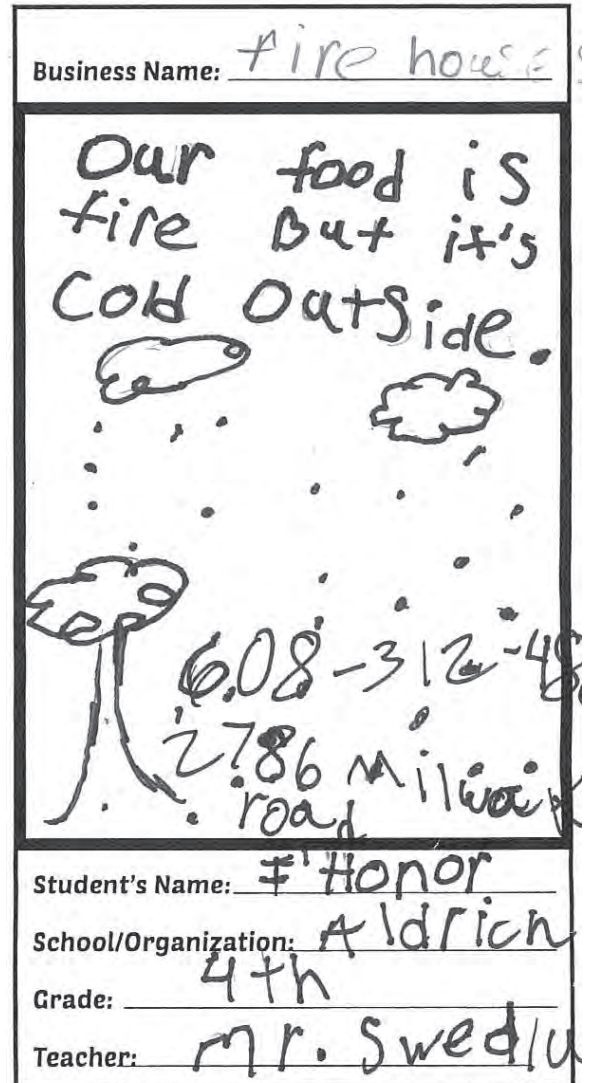 Business Name: fire house
Our food is
fire But it's
Cold OutSide.
608-312-48
2786 Milwauk
road
Student's Name: I'Honor
School/Organization: Aldrich
Grade: 4th
Teacher: Mr. Swedlu